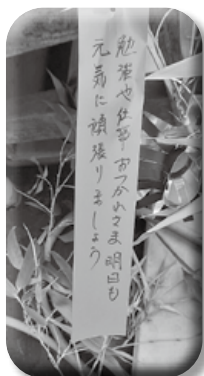 勉強や仕事おつかれさま 明日も
元気に頑張りましょう